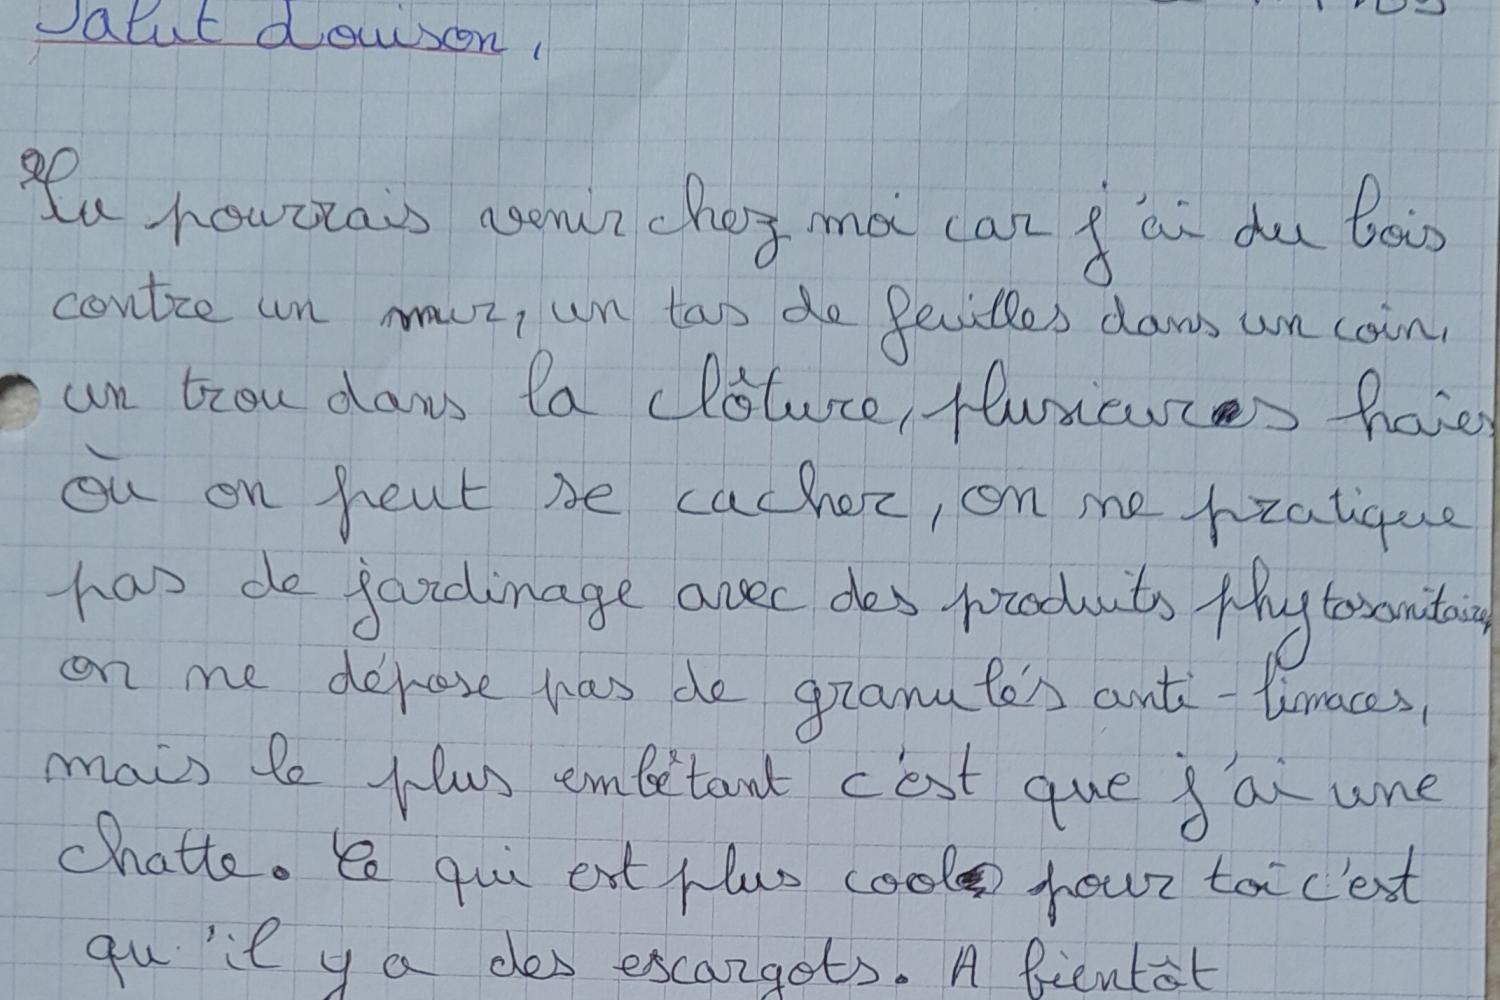 Salut Louison,
Tu pourrais venir chez moi car j'ai du bois
contre un mur, un tas de feuilles dans un coin,
un trou dans la clôture, plusieurs haies
où on peut se cacher, on ne pratique
pas de jardinage avec des produits phytosanitaires,
on ne dépose pas de granulés anti-limaces,
mais le plus embêtant c'est que j'ai une
chatte. Ce qui est plus cool pour toi c'est
qu'il y a des escargots. A bientôt